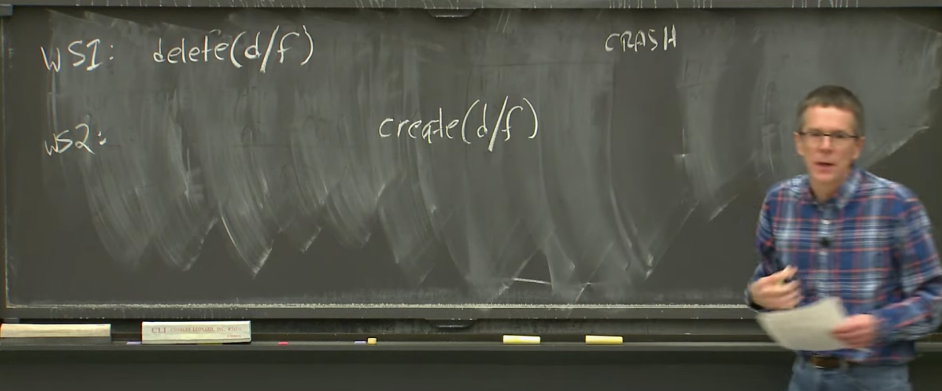 WS1: delete(d/f) CRASH
WS2: create(d/f)
CLI